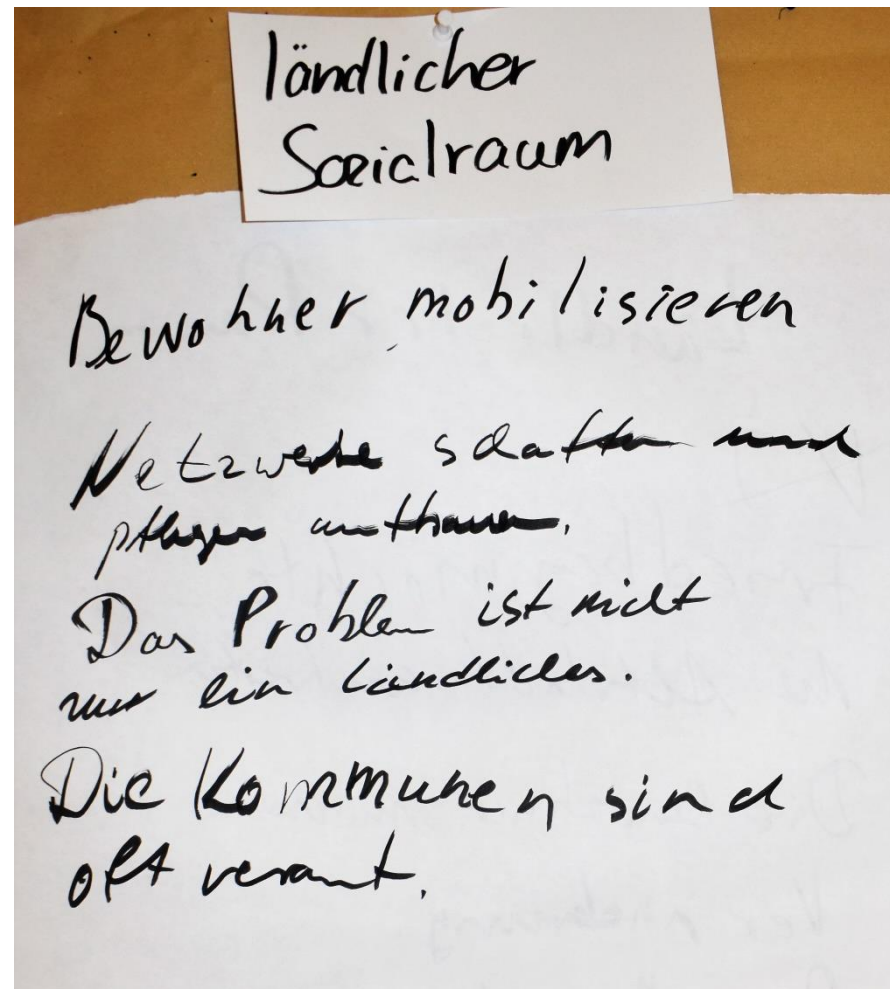 ländlicher
Sozialraum
Bewohner mobilisieren
Netzwerke schaffen und
pflegen aufbauen.
Das Problem ist nicht
nur ein ländliches.
Die Kommunen sind
oft verarmt.